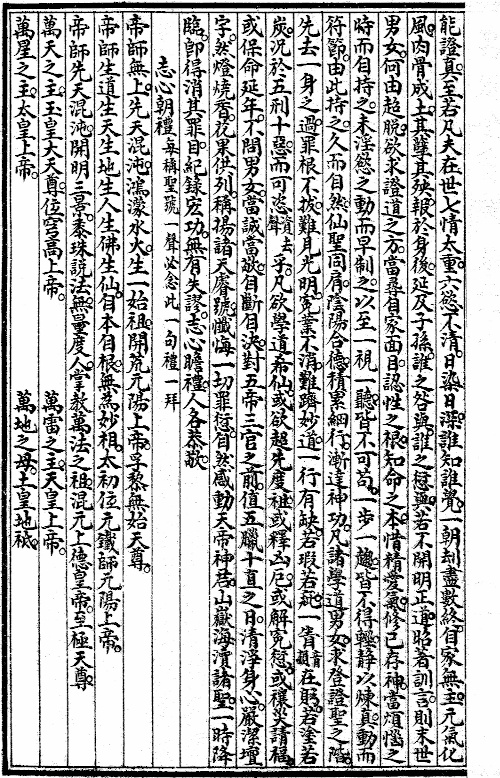 能證真至若凡夫在世七情太重六慾不清日染日深誰知誰覺一朝刦盡數終自家無主元氣化
風肉骨成土其孽其殃報於身後延及子孫誰之咎與誰之愆與若不開明正道昭著訓言則末世
男女何由超脫欲求證道之方當尋自家面目認性之根知命之本惜精愛氣修己存神當煩惱之
時而自持之未淫慾之動而早制之以至一視一聽皆不可苟一步一趨皆不得輕靜以煉真動而
符節由此持之久而自然仙聖同肩陰陽合德積累細行漸達神功凡諸學道男女求登證聖之階
先去一身之過罪根不拔難見光明冤業不消難躋妙道一行有缺若瑕若玼一眚在躬若塗若
炭況於五刑十惡而可恣資去聲乎凡欲學道希仙或欲超先度祖或釋凶厄或解冤愆或禳災請福
或保命延年不問男女當誠當敬自斷自決對五帝三官之前值五臘十直之日清淨身心嚴潔壇
宇然燈燒香花果供列稱揚諸天尊號懺悔一切罪愆自然感動天帝神君山嶽海瀆諸聖一時降
臨卽得消其罪目紀錄宏功無有失謬志心瞻禮人各恭敬
志心朝禮每稱聖號一聲必念此一句禮一拜
帝師無上先天混沌鴻濛水火生一始祖開荒元陽上帝孚黎無始天尊
帝師生道生天生地生人生佛生仙自本自根無為妙祖太初位元鐵師元陽上帝
帝師先天混沌開明三景黍珠說法無量度人掌教萬法之祖混元上德皇帝至極天尊
萬天之主玉皇大天尊位穹高上帝 萬雷之主天皇上帝
萬星之主太皇上帝 萬地之母土皇地祇